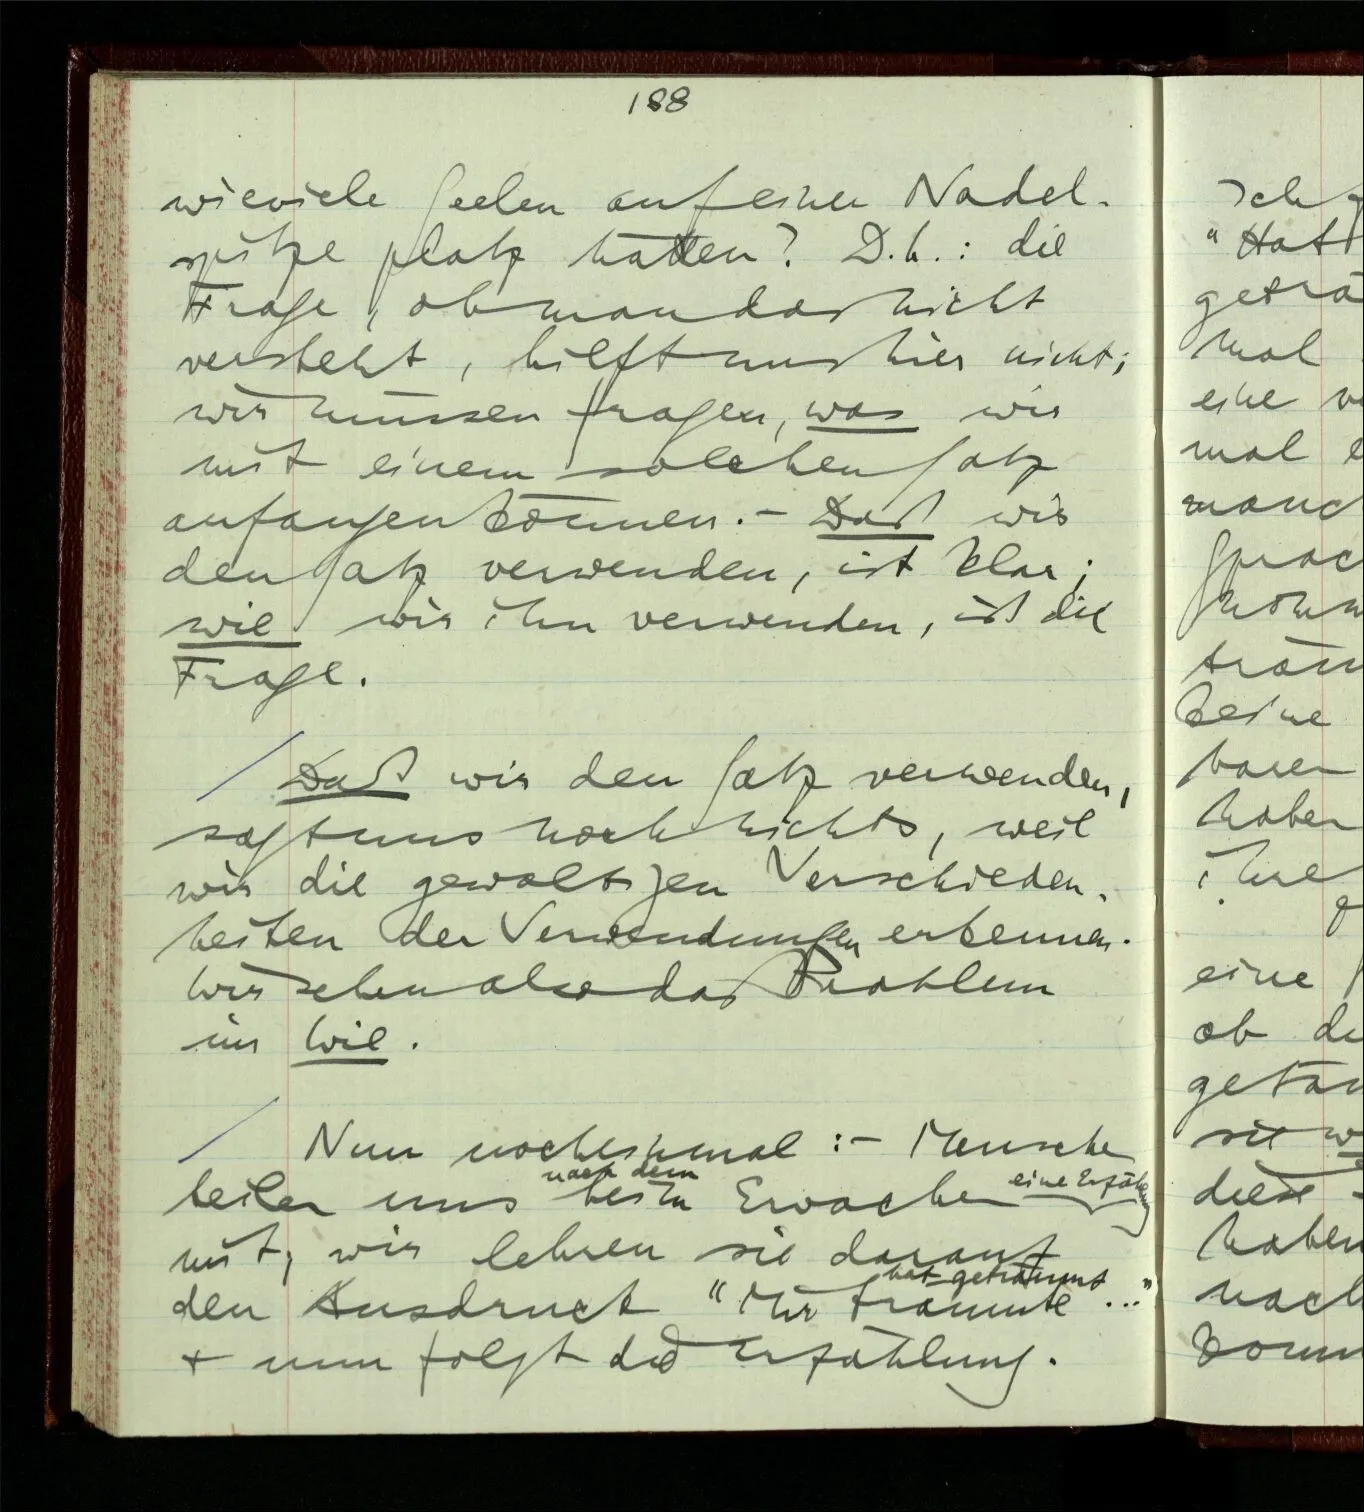 188
wieviele Seelen auf einer Nadel-
spitze platz hätten? D.h.: die
Frage, ob man das nicht
versteht, hilft uns hier nicht;
wir müssen fragen, was wir
mit einem solchen Satz
anfangen können. – Daß wir
den Satz verwenden, ist klar;
wie wir ihn verwenden, ist die
Frage.
/ Daß wir den Satz verwenden,
sagt uns noch nichts, weil
wir die gewaltigen Verschieden-
heiten der Verwendungen erkennen.
Wir sehen also das Problem
im Wie.
/ Nun nocheinmal: – Menschen
nach dem
teilen uns beim Erwachen eine Erzählung
mit; wir lehren sie darauf
hat geträumt
den Ausdruck "Mir träumte ..."
+ nun folgt die Erzählung.
Ich
"Hat
geträ
mal
eine ve
mal e
manc
Sprac
komm
träu
keine
haben
ihre
eine
ob di
getäu
sie w
diese
haben
nach
komm